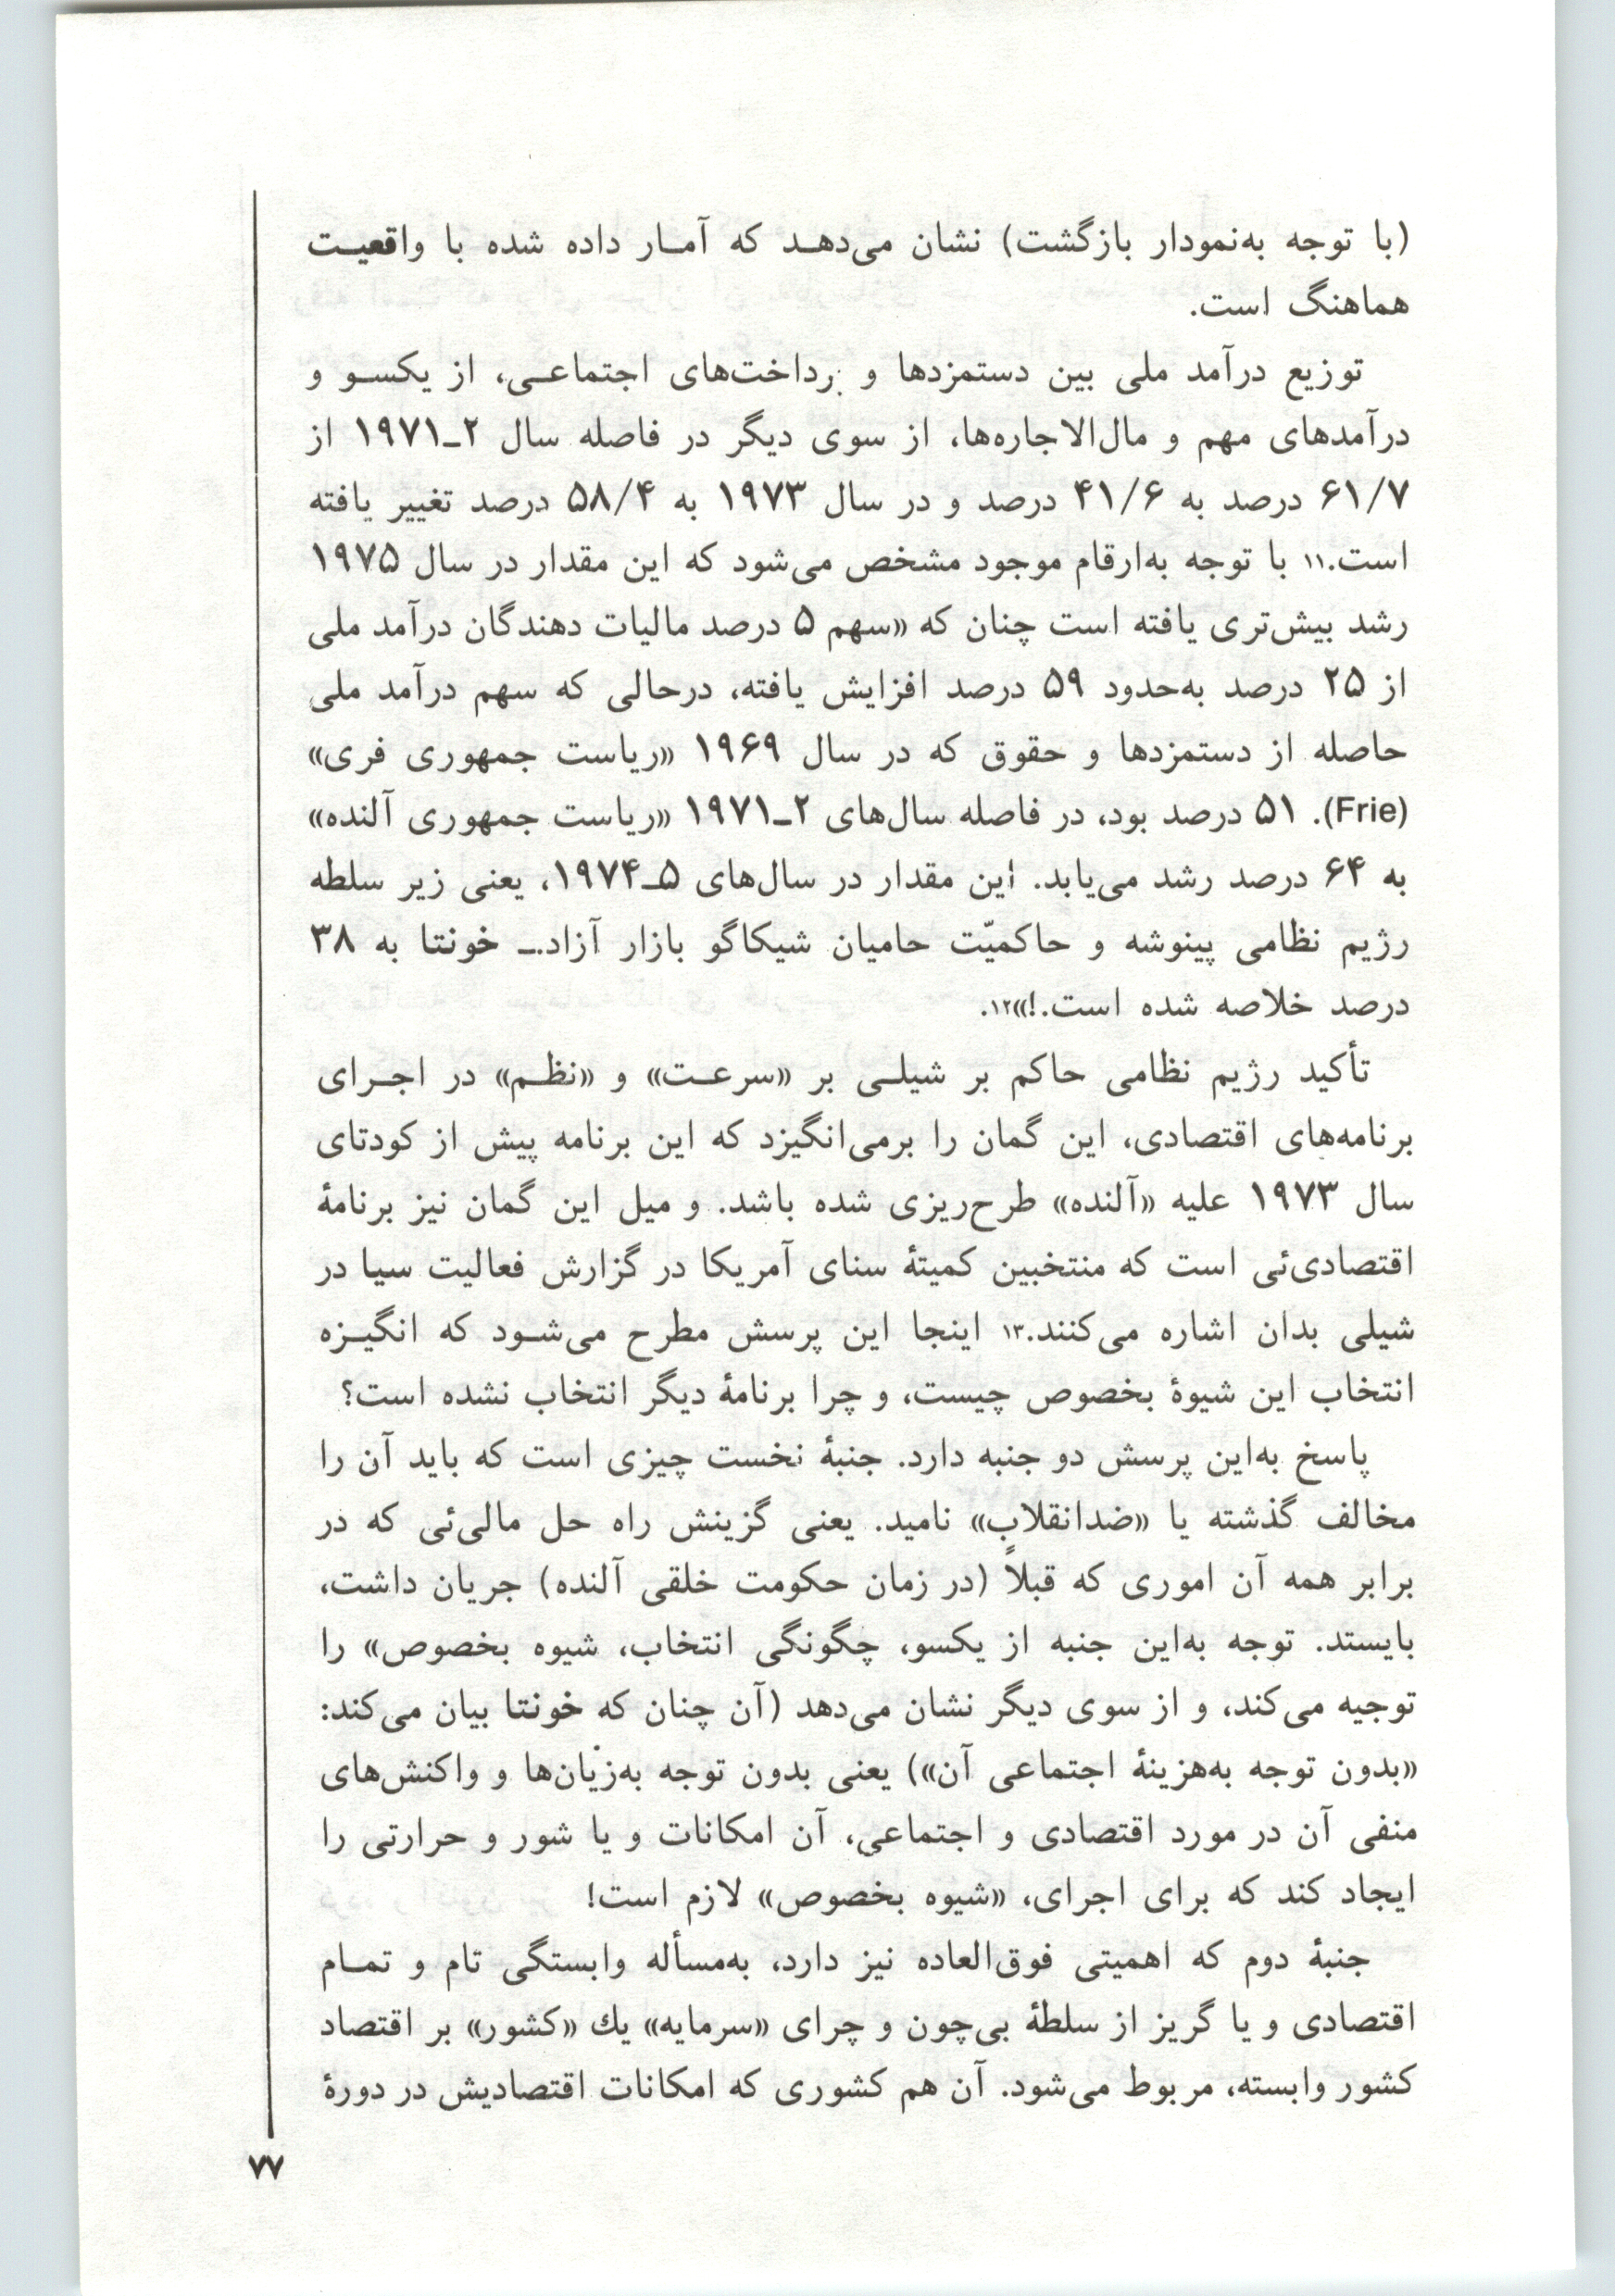 (با توجه به‌نمودار بازگشت) نشان می‌دهـد که آمـار داده شده با واقعیـت
هماهنگ است.
توزیع درآمد ملی بین دستمزدها و پرداخت‌های اجتماعـی، از یکسـو و
درآمدهای مهم و مال‌الاجاره‌ها، از سوی دیگر در فاصله سال ۲ـ۱۹۷۱ از
۶۱/۷ درصد به ۴۱/۶ درصد و در سال ۱۹۷۳ به ۵۸/۴ درصد تغییر یافته
است.۱۱ با توجه به‌ارقام موجود مشخص می‌شود که این مقدار در سال ۱۹۷۵
رشد بیش‌تری یافته است چنان که «سهم ۵ درصد مالیات دهندگان درآمد ملی
از ۲۵ درصد به‌حدود ۵۹ درصد افزایش یافته، درحالی که سهم درآمد ملی
حاصله از دستمزدها و حقوق که در سال ۱۹۶۹ «ریاست جمهوری فری»
(Frie). ۵۱ درصد بود، در فاصله سال‌های ۲ـ۱۹۷۱ «ریاست جمهوری آلنده»
به ۶۴ درصد رشد می‌یابد. این مقدار در سال‌های ۵ـ۱۹۷۴، یعنی زیر سلطه
رژیم نظامی پینوشه و حاکمیّت حامیان شیکاگو بازار آزاد.ـ خونتا به ۳۸
درصد خلاصه شده است.!»۱۲.
تأکید رژیم نظامی حاکم بر شیلـی بر «سرعـت» و «نظـم» در اجـرای
برنامه‌های اقتصادی، این گمان را برمی‌انگیزد که این برنامه پیش از کودتای
سال ۱۹۷۳ علیه «آلنده» طرح‌ریزی شده باشد. و میل این گمان نیز برنامهٔ
اقتصادی‌ئی است که منتخبین کمیتهٔ سنای آمریکا در گزارش فعالیت سیا در
شیلی بدان اشاره می‌کنند.۱۳ اینجا این پرسش مطرح می‌شـود که انگیـزه
انتخاب این شیوهٔ بخصوص چیست، و چرا برنامهٔ دیگر انتخاب نشده است؟
پاسخ به‌این پرسش دو جنبه دارد. جنبهٔ نخست چیزی است که باید آن را
مخالف گذشته یا «ضدانقلاب» نامید. یعنی گزینش راه حل مالی‌ئی که در
برابر همه آن اموری که قبلاً (در زمان حکومت خلقی آلنده) جریان داشت،
بایستد. توجه به‌این جنبه از یکسو، چگونگی انتخاب، شیوه بخصوص» را
توجیه می‌کند، و از سوی دیگر نشان می‌دهد (آن چنان که خونتا بیان می‌کند:
«بدون توجه به‌هزینهٔ اجتماعی آن») یعنی بدون توجه به‌زیان‌ها و واکنش‌های
منفی آن در مورد اقتصادی و اجتماعی، آن امکانات و یا شور و حرارتی را
ایجاد کند که برای اجرای، «شیوه بخصوص» لازم است!
جنبهٔ دوم که اهمیتی فوق‌العاده نیز دارد، به‌مسأله وابستگی تام و تمـام
اقتصادی و یا گریز از سلطهٔ بی‌چون و چرای «سرمایه» یك «کشور» بر اقتصاد
کشور وابسته، مربوط می‌شود. آن هم کشوری که امکانات اقتصادیش در دورهٔ
۷۷